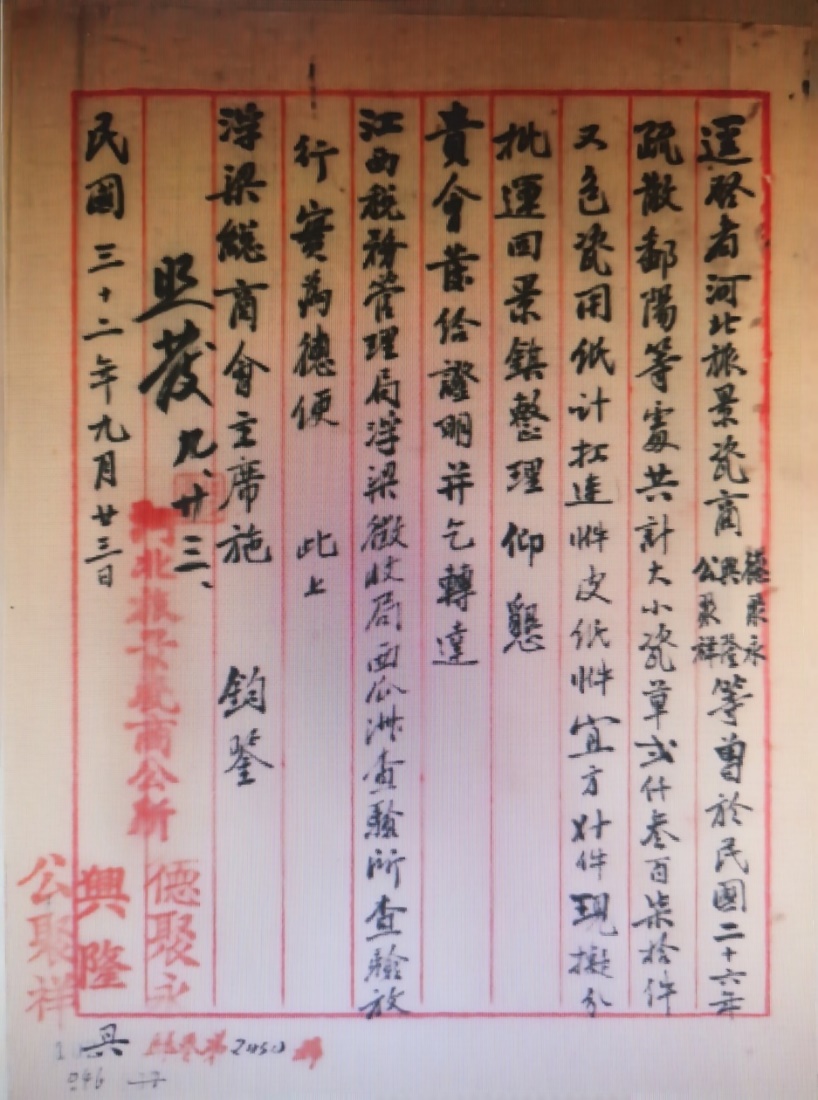 逕啓者河北旅景瓷商德聚永興隆公聚祥等曾於民國二十六年
疏散鄱陽等處共計大小瓷草弍仟叁百柒拾件
又色瓷用紙計扛連 件皮紙 件宜方 件現擬分
批運回景鎮整理仰懇
貴會發給證明并乞轉達
江西稅務管理局浮梁徵收局西瓜洲查驗所查驗放
行實爲德便 此上
浮梁總商會主席施 鈞鑒
照發 九、廿三、
河北旅景瓷商公所
德聚永
興隆
公聚祥
具
民國三十二年九月廿三日
第2450號
046